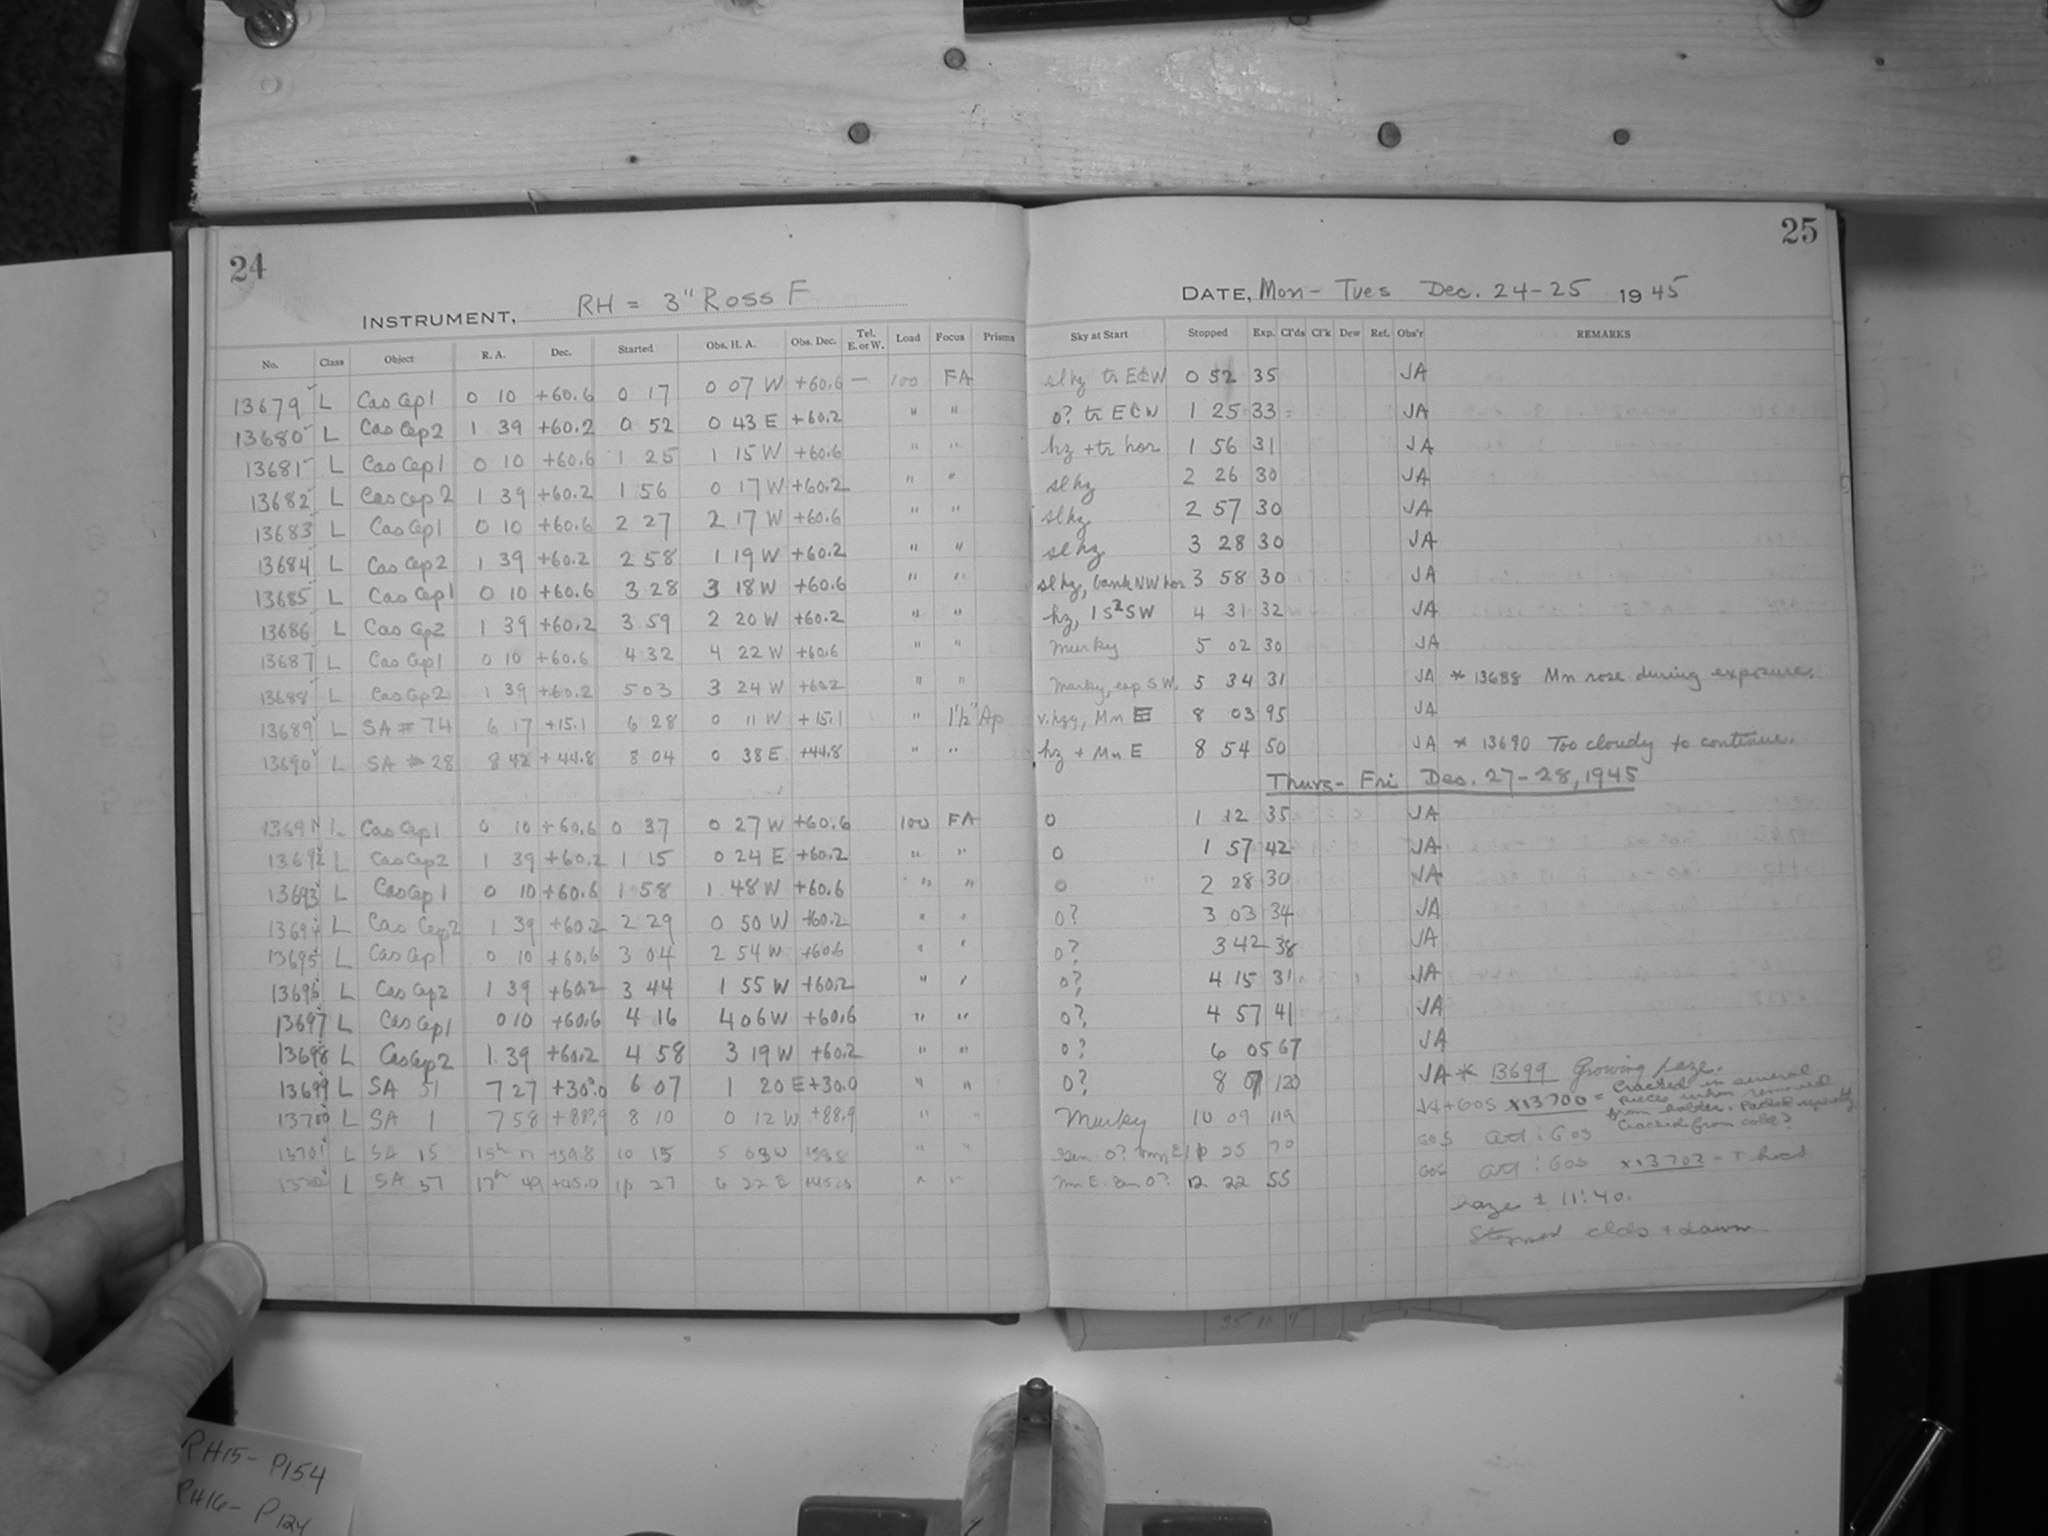 24
25
INSTRUMENT, RH = 3" Ross F
DATE, Mon - Tues Dec. 24-25 1945
No. Class Object R. A. Dec. Started Obs. H. A. Obs. Dec. Tel. E. or W. Load Focus Prisms Sky at Start Stopped Exp. Cl'ds Cl'k Dew Ref. Obs'r REMARKS
13679 L Cas Cep1 0 10 +60.6 0 17 0 07 W +60.6 — 100 FA sl hz tr E&W 0 52 35 JA
13680 L Cas Cep2 1 39 +60.2 0 52 0 43 E +60.2 " " 0? tr E&W 1 25 33 JA
13681 L Cas Cep1 0 10 +60.6 1 25 1 15 W +60.6 " " hz + tr hor 1 56 31 JA
13682 L Cas Cep2 1 39 +60.2 1 56 0 17 W +60.2 " " sl hz 2 26 30 JA
13683 L Cas Cep1 0 10 +60.6 2 27 2 17 W +60.6 " " sl hz 2 57 30 JA
13684 L Cas Cep2 1 39 +60.2 2 58 1 19 W +60.2 " " sl hz 3 28 30 JA
13685 L Cas Cep1 0 10 +60.6 3 28 3 18 W +60.6 " " sl hz, bank NW hor 3 58 30 JA
13686 L Cas Cep2 1 39 +60.2 3 59 2 20 W +60.2 " " hz, 1 S² SW 4 31 32 JA
13687 L Cas Cep1 0 10 +60.6 4 32 4 22 W +60.6 " " Murky 5 02 30 JA
13688 L Cas Cep2 1 39 +60.2 5 03 3 24 W +60.2 " " Murky, esp S W. 5 34 31 JA * 13688 Mn rose during exposure.
13689 L SA # 74 6 17 +15.1 6 28 0 11 W +15.1 " 1½" Ap v. hzy, Mn E 8 03 95 JA
13690 L SA # 28 8 42 +44.8 8 04 0 38 E +44.8 " " hz + Mn E 8 54 50 JA * 13690 Too cloudy to continue.
Thurs - Fri Dec. 27-28, 1945
13691 L Cas Cep1 0 10 +60.6 0 37 0 27 W +60.6 100 FA 0 1 12 35 JA
13692 L Cas Cep2 1 39 +60.2 1 15 0 24 E +60.2 " " 0 1 57 42 JA
13693 L Cas Cep1 0 10 +60.6 1 58 1 48 W +60.6 " " 0 2 28 30 JA
13694 L Cas Cep2 1 39 +60.2 2 29 0 50 W +60.2 " " 0? 3 03 34 JA
13695 L Cas Cep1 0 10 +60.6 3 04 2 54 W +60.6 " " 0? 3 42 38 JA
13696 L Cas Cep2 1 39 +60.2 3 44 1 55 W +60.2 " " 0? 4 15 31 JA
13697 L Cas Cep1 0 10 +60.6 4 16 4 06 W +60.6 " " 0? 4 57 41 JA
13698 L Cas Cep2 1 39 +60.2 4 58 3 19 W +60.2 " " 0? 6 05 67 JA
13699 L SA 51 7 27 +30.0 6 07 1 20 E +30.0 " " 0? 8 07 120 JA * 13699 Growing haze.
13700 L SA 1 7 58 +88.9 8 10 0 12 W +88.9 " " Murky 10 09 119 JA + GOS x13700 = Cracked in several
pieces when removed
from holder. Packed separately
Cracked from cold?
13701 L SA 15 15h 10 15 5 03 " " 25 70 GOS att : GOS
13702 L SA 37 17h 49 +45.0 27 6 22 E +45.0 " " Mn E. 0? 12 22 55 GOS att : GOS x13702 -
haze ± 11:40.
Stopped clds + dawn
35 10
RH15 - P154
RH16 - P124